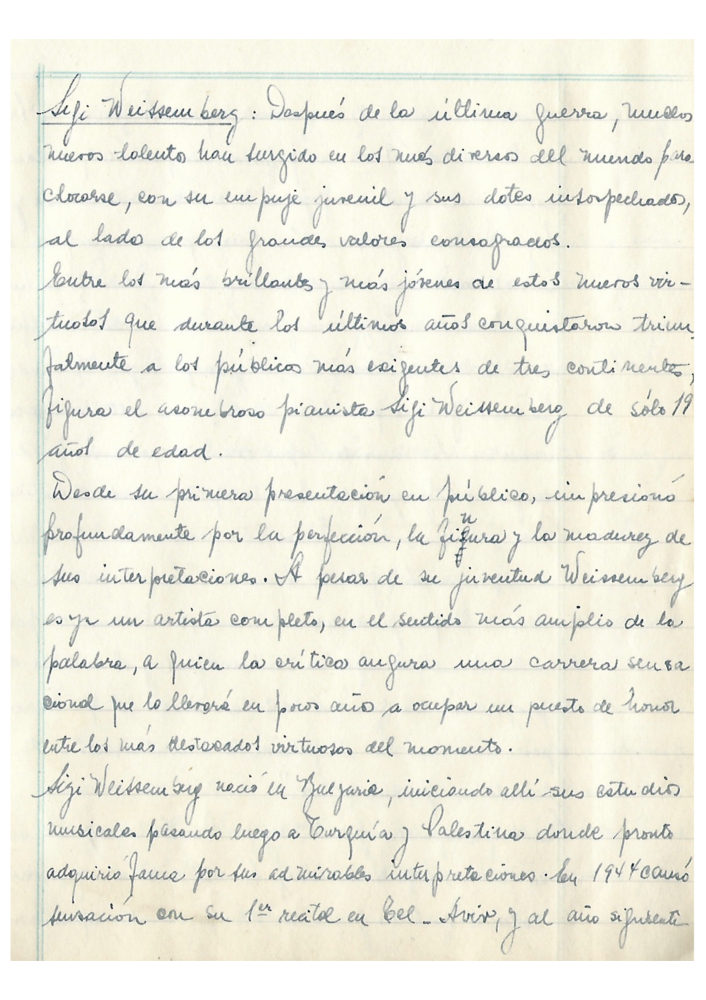 Sigi Weissemberg : Después de la última guerra, muchos
nuevos talento han surgido en los más diversos del mundo para
clocarse, con su empuje juvenil y sus dotes insospechados,
al lado de los grandes valores consagrados.
Entre los más brillantes y más jóvenes de estos nuevos vir-
tuosos que durante los últimos años conquistaron triun
falmente a los públicos más exigentes de tres continentes,
figura el asombroso pianista Sigi Weissemberg de sólo 19
años de edad.
Desde su primera presentación en público, impresionó
profundamente por la perfección, la finura y la madurez de
sus interpretaciones. A pesar de su juventud Weissemberg
es ya un artista completo, en el sentido más amplio de la
palabra, a quien la crítica augura una carrera sensa
cional que lo llevará en pocos año a ocupar un puesto de honor
entre los más destacados virtuosos del momento.
Sigi Weissemberg nació en Bulgaria, iniciando allí sus estudios
musicales pasando luego a Turquía y Palestina donde pronto
adquirió fama por sus admirables interpretaciones. En 1944 causó
sensación con su 1er recital en Tel-Aviv, y al año siguiente